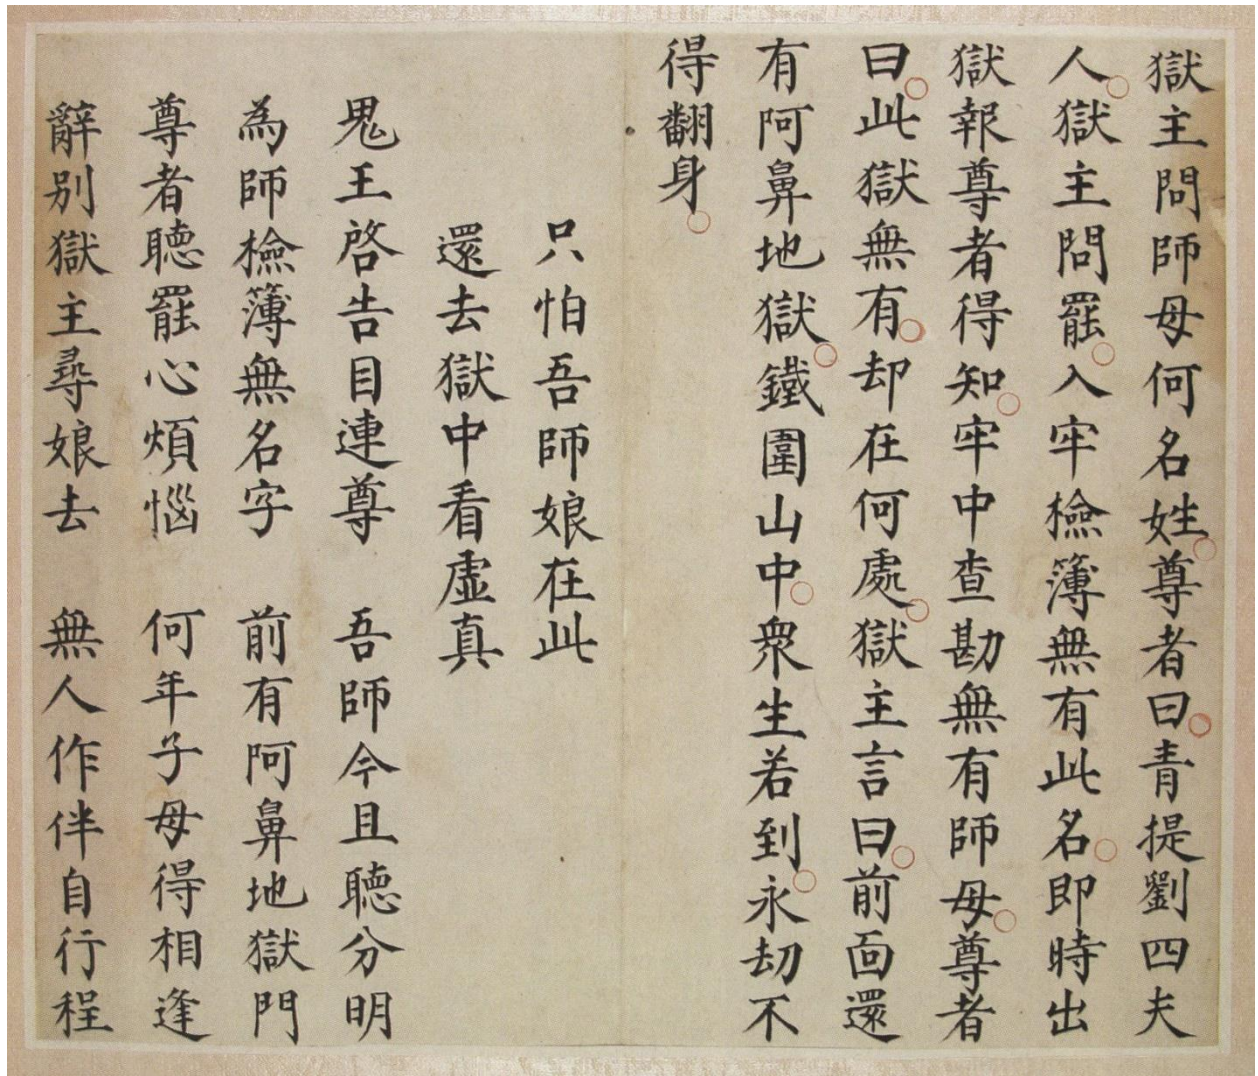 獄主問師母何名姓尊者曰青提劉四夫
人獄主問罷入牢檢簿無有此名即時出
獄報尊者得知牢中查勘無有師母尊者
曰此獄無有却在何處獄主言曰前面還
有阿鼻地獄鐵圍山中衆生若到永劫不
得翻身
只怕吾師娘在此
還去獄中看虛真
鬼王啓告目連尊 吾師今且聽分明
為師檢簿無名字 前有阿鼻地獄門
尊者聽罷心煩惱 何年子母得相逢
辭別獄主尋娘去 無人作伴自行程